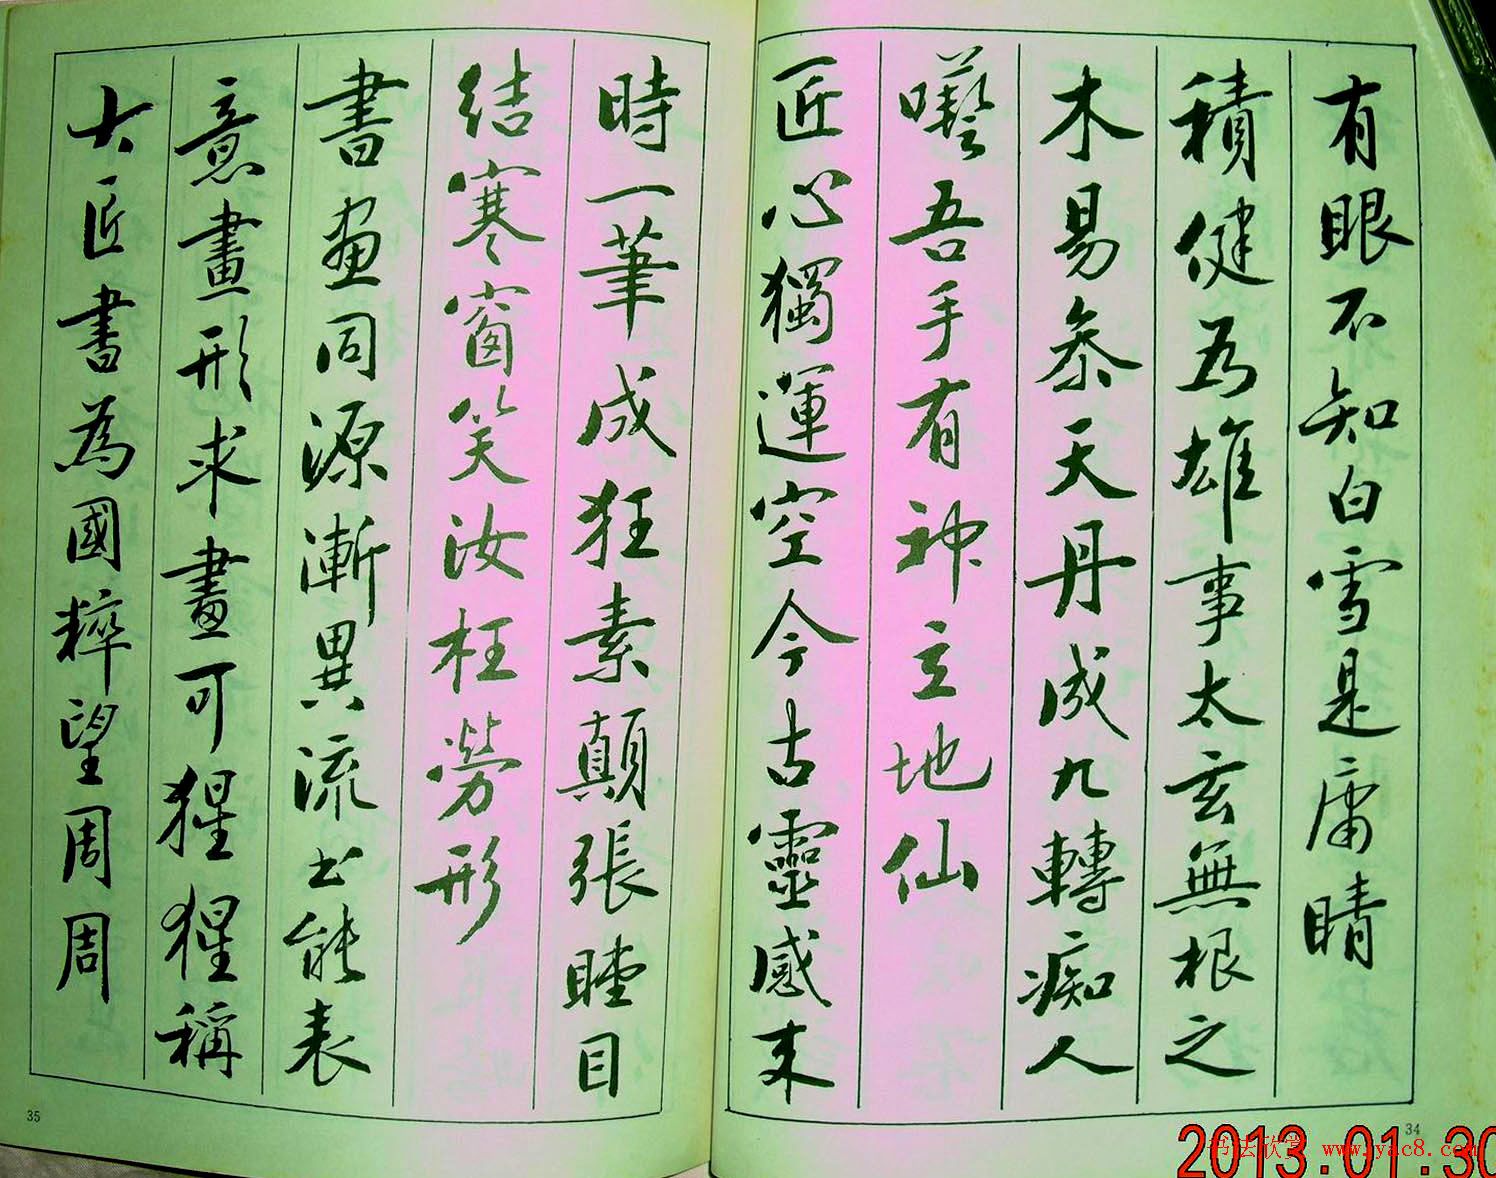 有眼不知白雪是庸睛
積健为雄事太玄無根之
木易参天丹成九轉痴人
囈吾手有神立地仙
匠心獨運空今古靈感来
34
時一筆成狂素顛張瞠目
结寒窗笑汝枉勞形
書画同源漸異流书能表
意畫形求畫可猩猩稱
大匠書為國粹望周周
35
2013.01.30
书法欣赏 www.yac8.com